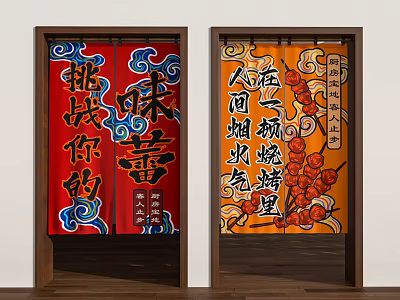 挑战你的
味蕾
厨房宝地
客人止步
人间烟火气
在一顿烧烤里
厨房宝地 客人止步